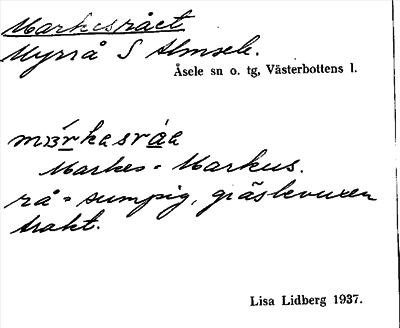 Markesrået
Myrrå S Almsele.
Åsele sn o. tg, Västerbottens l.
márkesráe
Markes = Markus.
rå = sumpig, gräsbevuxen
trakt.
Lisa Lidberg 1937.